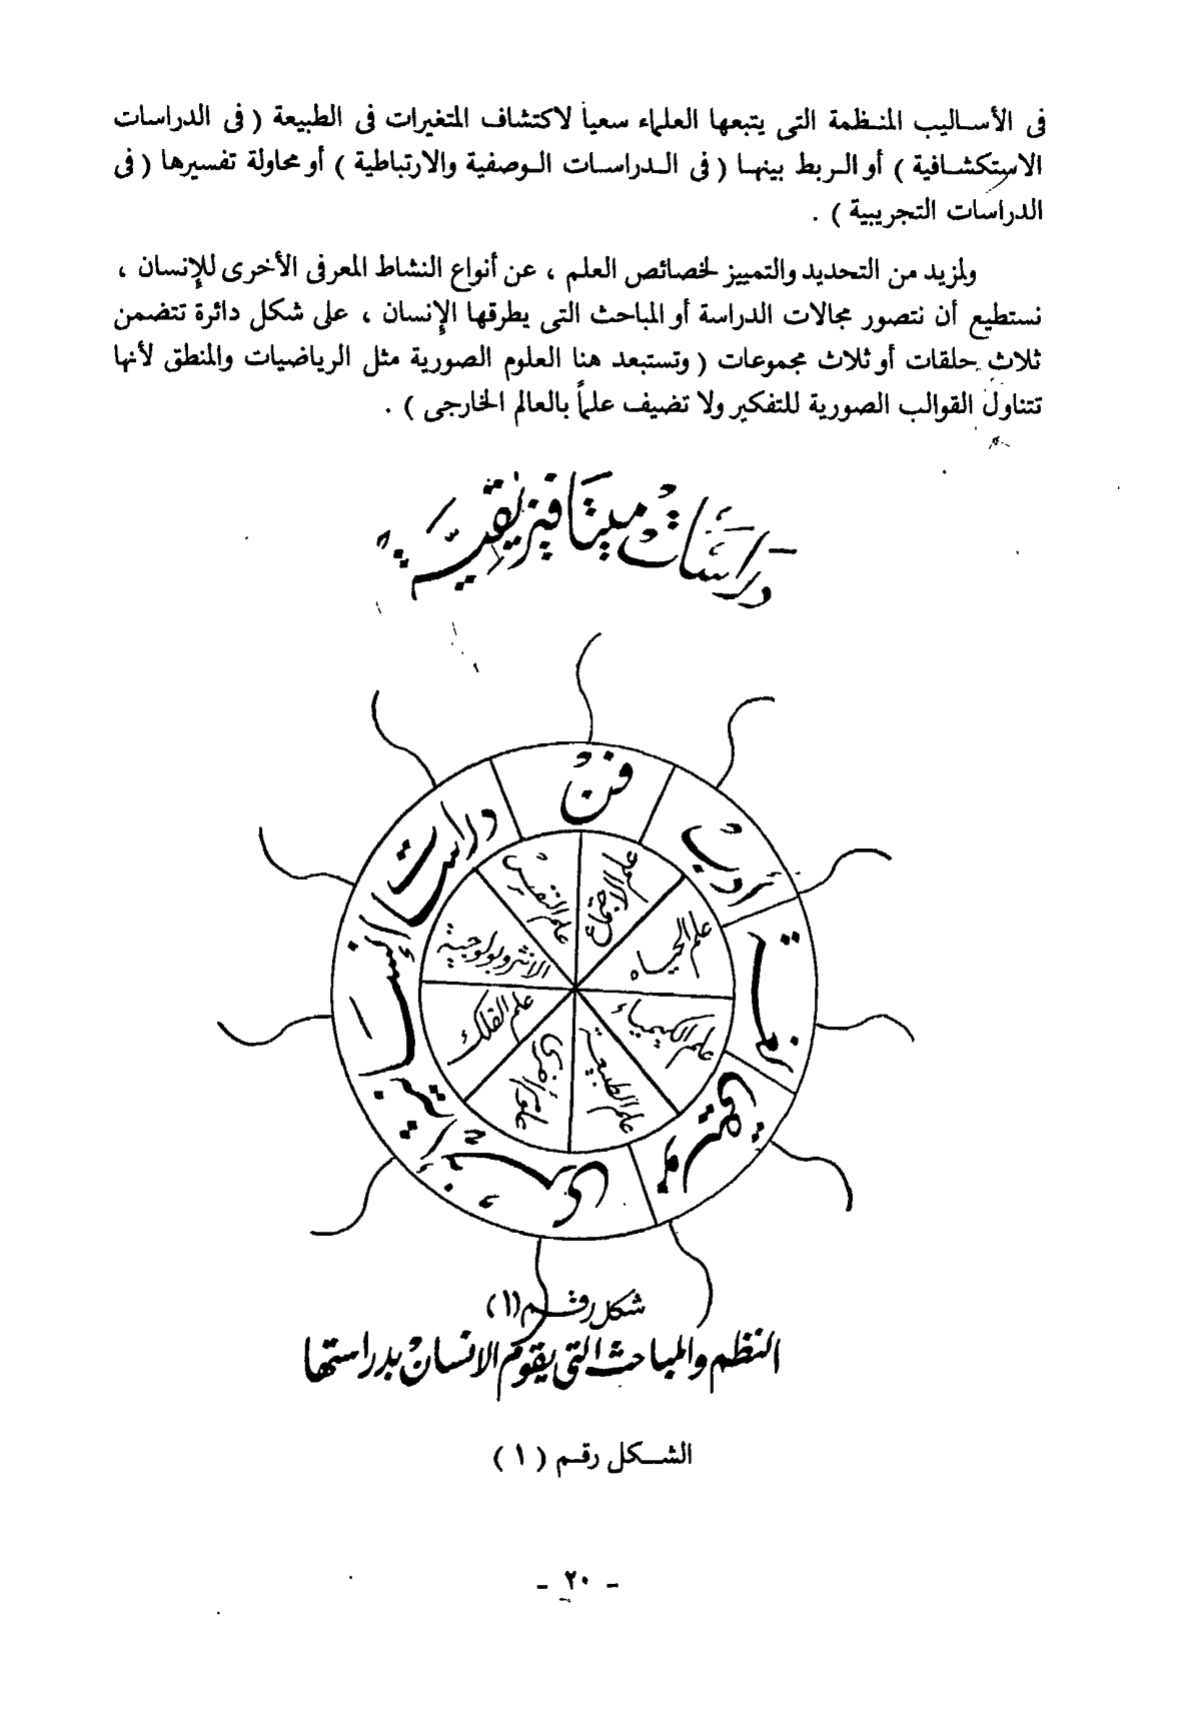 فى الأساليب المنظمة التى يتبعها العلماء سعياً لاكتشاف المتغيرات فى الطبيعة ( فى الدراسات
الاستكشافية ) أو الربط بينها ( فى الدراسات الوصفية والارتباطية ) أو محاولة تفسيرها ( فى
الدراسات التجريبية ) .
ولمزيد من التحديد والتمييز لخصائص العلم ، عن أنواع النشاط المعرفى الأخرى للإنسان ،
نستطيع أن نتصور مجالات الدراسة أو المباحث التى يطرقها الإنسان ، على شكل دائرة تتضمن
ثلاث حلقات أو ثلاث مجموعات ( وتستبعد هنا العلوم الصورية مثل الرياضيات والمنطق لأنها
تتناول القوالب الصورية للتفكير ولا تضيف علماً بالعالم الخارجى ) .
دراسات ميتافيزيقية
فن
أدب
لغة
موسيقى
دراسات إنسانية أخرى
علم الاجتماع
علم الحياه
علم الكيمياء
علم الطبيعة
علوم أخرى
علم الفلك
الانثروبولوجية
علم النفس
شكل رقم (١)
النظم والمباحث التى يقوم الانسان بدراستها
الشكل رقم ( ١ )
- ٢٠ -